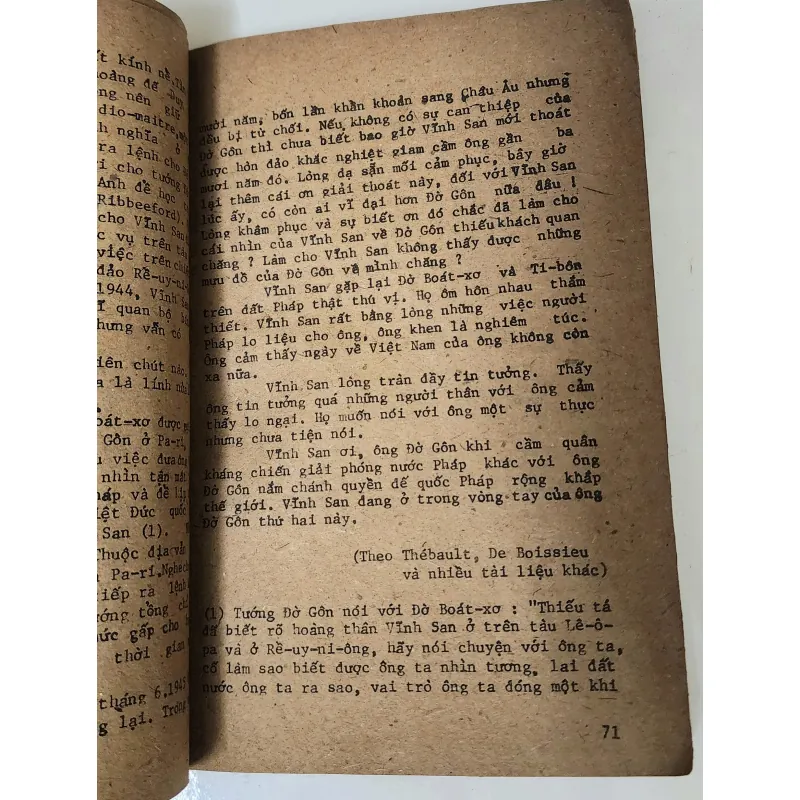 ất kính nể,
hoàng đế Duy
ng nên giữ
dio-maitre,
nh nghĩa ở
ra lệnh cho
i cho tướng
Anh để học
Ribbeeford).
cho Vĩnh San
c vụ trên
việc trên
đảo Rề-uy-ni-
1944, Vĩnh San
ĩ quan bộ
nhưng vẫn có
iên chút nào.
a là lính
oát-xơ được
Gôn ở Pa-ri,
u việc đưa
nhìn tận
háp và đề
iệt Đức quốc
San (1).
Thuộc địa vẫn
Pa-ri.
tiếp ra lệnh
ướng tổng
hức gấp cho
thời gian
tháng 6.1945
g lại. Trong
mười năm, bốn lần khẩn khoản sang Châu Âu nhưng
đều bị từ chối. Nếu không có sự can thiệp của
Đờ Gôn thì chưa biết bao giờ Vĩnh San mới thoát
được hòn đảo khác nghiệt giam cầm ông gần ba
mươi năm đó. Lòng dạ sẵn mối cảm phục, bây giờ
lại thêm cái ơn giải thoát này, đối với Vĩnh San
lúc ấy, có còn ai vĩ đại hơn Đờ Gôn nữa đâu !
Lòng khâm phục và sự biết ơn đó chắc đã làm cho
cái nhìn của Vĩnh San về Đờ Gôn thiếu khách quan
chăng ? Làm cho Vĩnh San không thấy được những
mưu đồ của Đờ Gôn về mình chăng ?
Vĩnh San gặp lại Đờ Boát-xơ và Ti-bôn
trên đất Pháp thật thú vị. Họ ôm hôn nhau thắm
thiết. Vĩnh San rất bằng lòng những việc người
Pháp lo liệu cho ông, ông khen là nghiêm túc.
Ông cảm thấy ngày về Việt Nam của ông không còn
xa nữa.
Vĩnh San lòng tràn đầy tin tưởng. Thấy
ông tin tưởng quá những người thân với ông cảm
thấy lo ngại. Họ muốn nói với ông một sự thực
nhưng chưa tiện nói.
Vĩnh San ơi, ông Đờ Gôn khi cầm quân
kháng chiến giải phóng nước Pháp khác với ông
Đờ Gôn nắm chánh quyền đế quốc Pháp rộng khắp
thế giới. Vĩnh San đang ở trong vòng tay của ông
Đờ Gôn thứ hai này.
(Theo Thébault, De Boissieu
và nhiều tài liệu khác)
(1) Tướng Đờ Gôn nói với Đờ Boát-xơ : "Thiếu tá
đã biết rõ hoàng thân Vĩnh San ở trên tàu Lê-ô-
pa và ở Rề-uy-ni-ông, hãy nói chuyện với ông ta,
cố làm sao biết được ông ta nhìn tương, lai đất
nước ông ta ra sao, vai trò ông ta đóng một khi
71